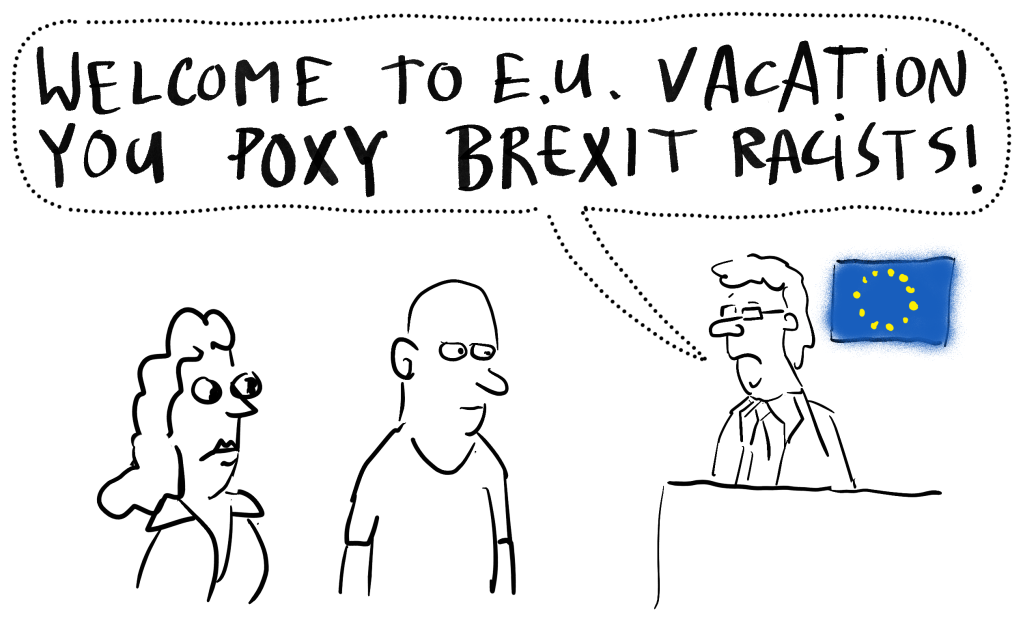 WELCOME TO E.U. VACATION
YOU POXY BREXIT RACISTS!